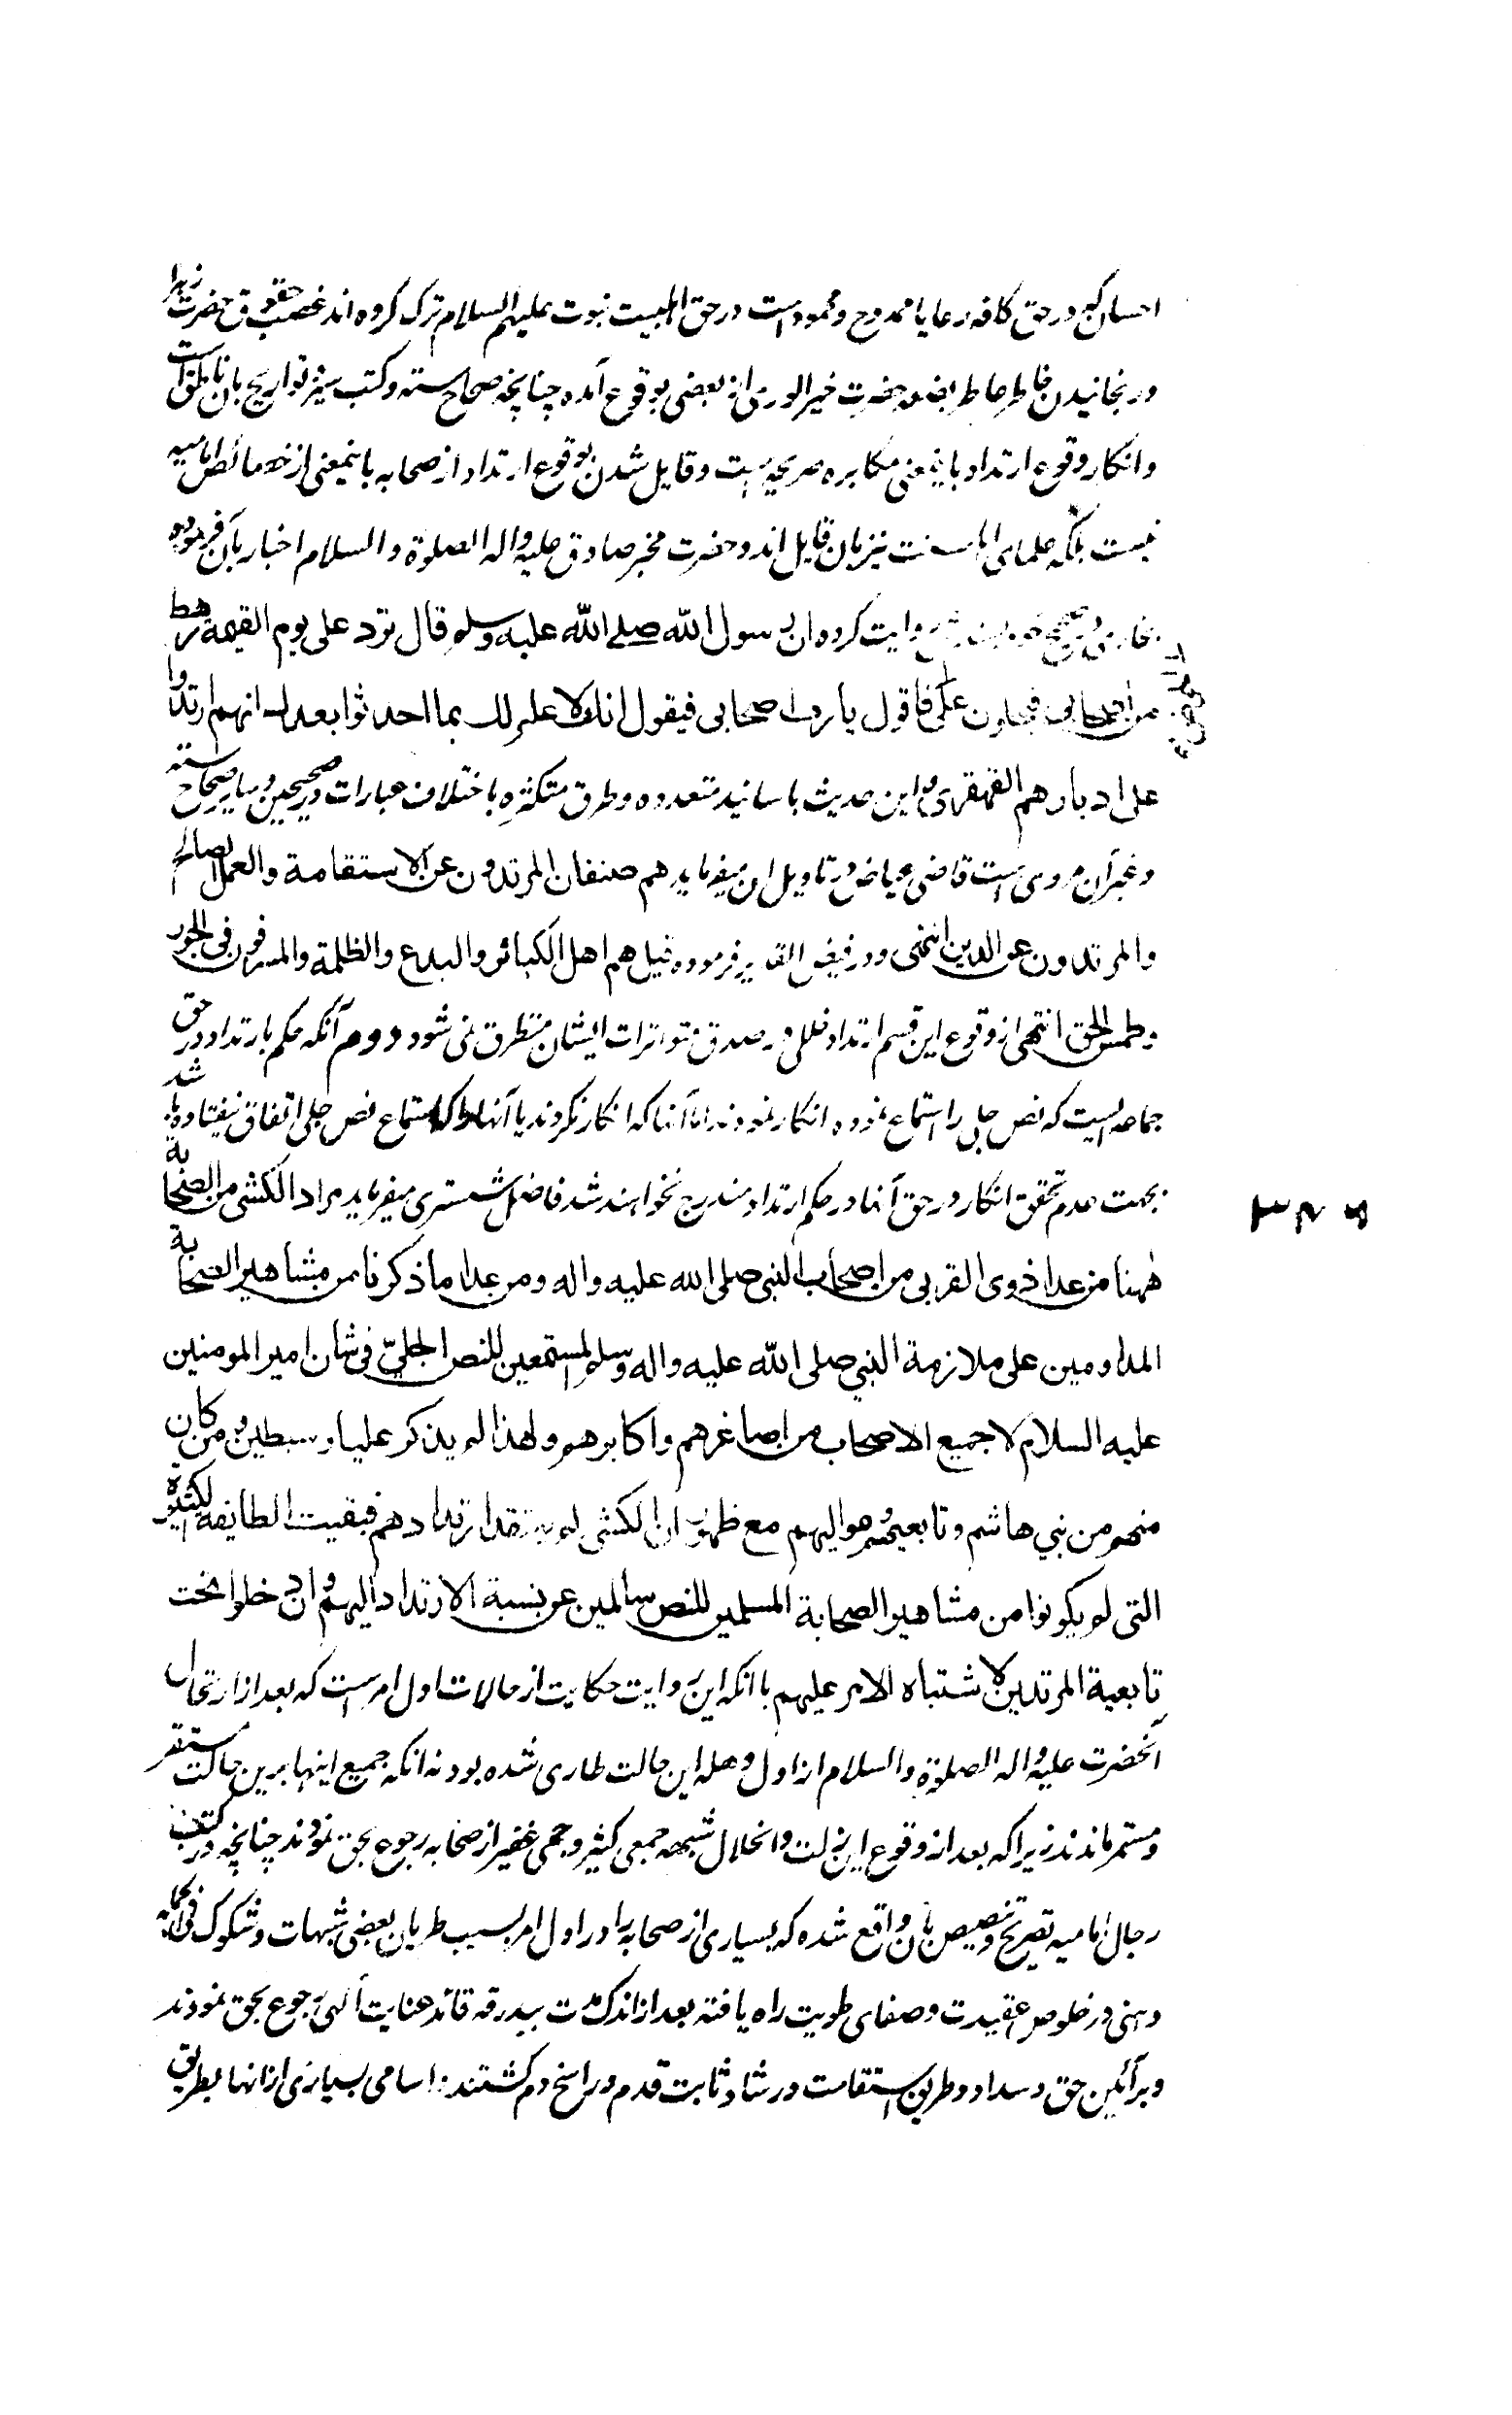 احسان که در حق کافه رعایا ممدوح و محمود است در حق اهلبیت نبوت علیهم السلام ترک کرده اند غصب حقوق حضرت زهرا
و رنجانیدن خاطر عاطر بضعه حضرت خیر الوری از بعضی بوقوع آمده چنانچه صحاح سته و کتب سیر و تواریخ بآن ناطق است
و انکار وقوع ارتداد باینمعنی مکابره صریحه است و قایل شدن بوقوع ارتداد از صحابه باینمعنی از خصائص امامیه
نیست بلکه علمای اهل سنت نیز بآن قایل اند و حضرت مخبر صادق علیه و اله الصلوة و السلام اخبار بآن فرموده
بخاری در صحیح خود روایت کرده ان رسول الله صلی الله علیه وسلم قال ترد علی یوم القیمة رهط
من اصحابی فیحلون عن فاقول یا رب اصحابی فیقول انک لا علم لک بما احدثوا بعدک انهم ارتدوا
علی ادبارهم القهقری و این حدیث باسانید متعدده و طرق متکثره باختلاف عبارات در صحیحین و سایر صحاح سته
و غیر آن مروی است قاضی عیاض در تاویل ان میفرماید هم صنفان المرتدون عن الاستقامة والعمل الصالح
والمرتدون عن الدین انتهی و در فیض القدیر فرموده قیل هم اهل الکبائر والبدع والظلمة والمسرفون فی الجور
و طمس الحق انتهی از وقوع این قسم ارتداد خللی در صدق متواترات ایشان متطرق نمی شود دوم آنکه حکم بارتداد در حق
جماعه ایست که نص جلی را استماع نموده انکار نمودند اما آنها که انکار نکردند یا آنها را که استماع نص جلی اتفاق نیفتاده باشد
بجهت عدم تحقق انکار در حق آنها در حکم ارتداد مندرج نخواهند شد فاضل شستری میفرماید مراد الکشی من الصحابة
ههنا من عدا ذوی القربی من اصحاب النبی صلی الله علیه واله ومن عدا ما ذکرنا من مشاهیر الصحابة
المداومین علی ملازمة النبی صلی الله علیه واله وسلم المستمعین للنص الجلیّ فی شان امیر المومنین
علیه السلام لا جمیع الاصحاب من اصاغرهم واکابرهم ولهذا لم یذکر علیا و سبطین ومن کان
منهم من بنی هاشم وتابعیهم وموالیهم مع ظهور ان الکشی لم یعتقد ارتدادهم فبقیت الطایفة الکثیرة
التی لم یکونوا من مشاهیر الصحابة المسلمین للنص سالمین عن نسبة الارتداد الیهم وان دخلوا تحت
تابعیة المرتدین لاشتباه الامر علیهم با انکه این روایت حکایت از حالات اول امر است که بعد از ارتحال
آنحضرت علیه و اله الصلوة و السلام از اول وهله این حالت طاری شده بود نه انکه جمیع اینها برین حالت مستقر
و مستمر ماندند زیرا که بعد از وقوع این زلت و انحلال شبهه جمعی کثیر و جمی غفیر از صحابه رجوع بحق نمودند چنانچه در کتب
رجال امامیه تصریح و تنصیص بآن واقع شده که بسیاری از صحابه را در اول امر بسبب طریان بعضی شبهات و شکوک فی الجمله
وهنی در خلوص عقیدت و صفای طویت راه یافته بعد از اندک مدت ببدرقه قائد عنایت آلهی رجوع بحق نمودند
و بر آئین حق و سداد و طریق استقامت و رشاد ثابت قدم و راسخ دم گشتند و اسامی بسیاری از انها بطریق